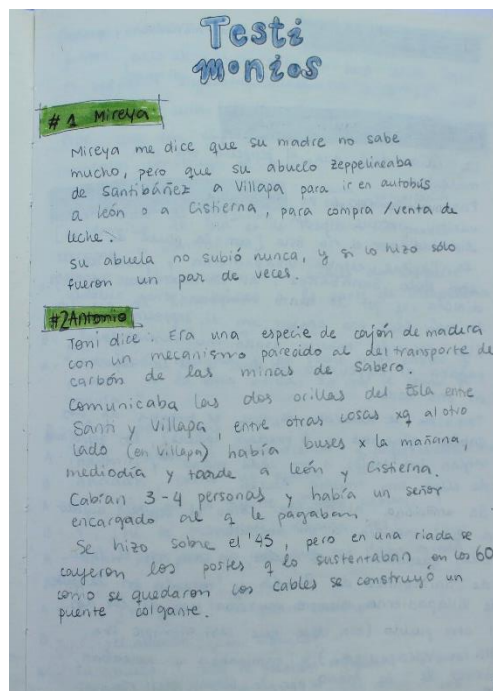 Testi
monios
#1 Mireya
Mireya me dice que su madre no sabe
mucho, pero que su abuelo zeppelineaba
de Santibáñez a Villapa para ir en autobús
a león o a Cistierna, para compra/venta de
leche.
su abuela no subió nunca, y si lo hizo sólo
fueron un par de veces.
#2Antonio
Toni dice: Era una especie de cajón de madera
con un mecanismo parecido al del transporte de
carbón de las minas de Sabero.
Comunicaba las dos orillas del Esla entre
Santi y Villapa, entre otras cosas xq al otro
lado (en Villapa) había buses x la mañana,
mediodía y tarde a león y Cistierna.
Cabían 3-4 personas y había un señor
encargado al q le pagaban.
Se hizo sobre el '45, pero en una riada se
cayeron los postes q lo sustentaban, en los 60
como se quedaron los cables se construyó un
puente colgante.